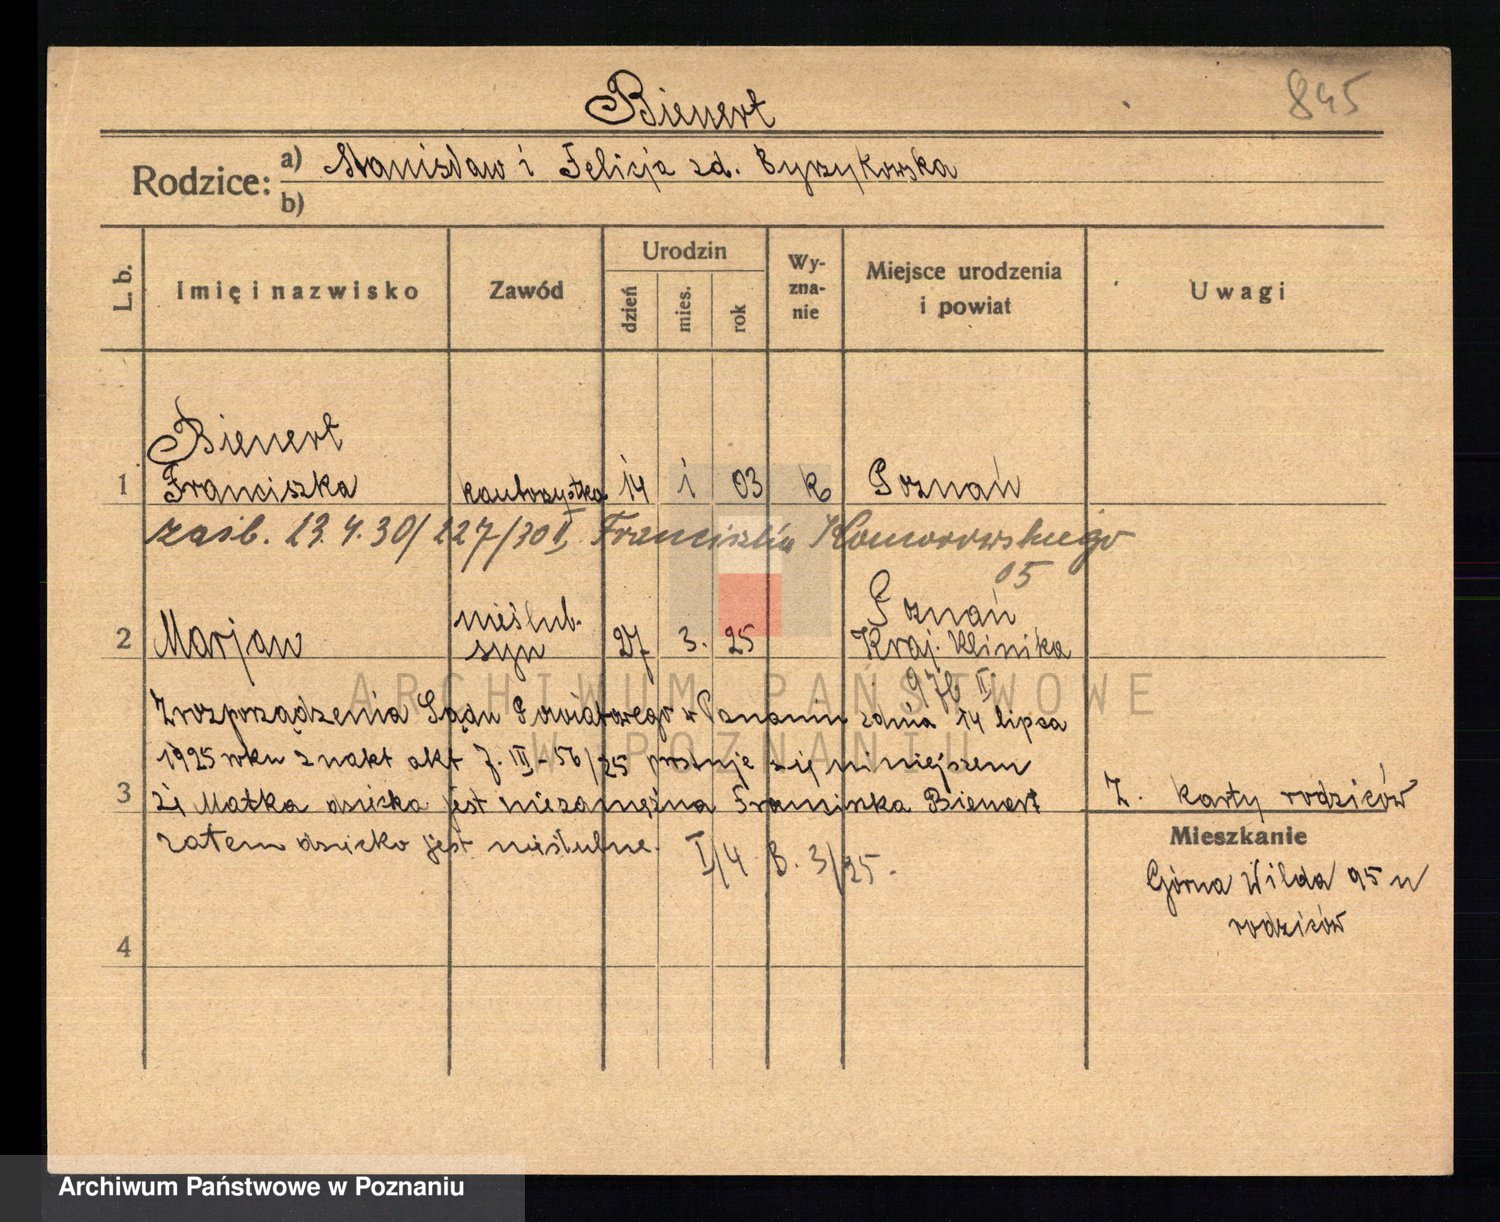 Bienert
845
Rodzice: a) Stanisław i Felicja zd. Byrzykowska
b)
L. b.
Imię i nazwisko
Zawód
Urodzin
dzień
mies.
rok
Wy-
zna-
nie
Miejsce urodzenia
i powiat
Uwagi
Bienert
1 Franciszka kantorzystka 14 1 03 k Poznań
zaśb. 23.4.30/227/30 II, Franciszka Komorowskiego
05
nieślub. Poznań
2 Marjan syn 27 3. 25 Kraj. Klinika
976 II
ARCHIWUM PAŃSTWOWE
W POZNANIU
Z rozporządzenia Sądu Powiatowego w Poznaniu z dnia 14 lipca
1925 roku znakt akt J. III - 56/25 prostuje się niniejszem
3 że Matka dziecka jest niezamężna Franciszka Bienert
zatem dziecko jest nieślubne. I/4 B. 3/25.
Z. karty rodziców
Mieszkanie
Górna Wilda 95 u
rodziców
4
Archiwum Państwowe w Poznaniu